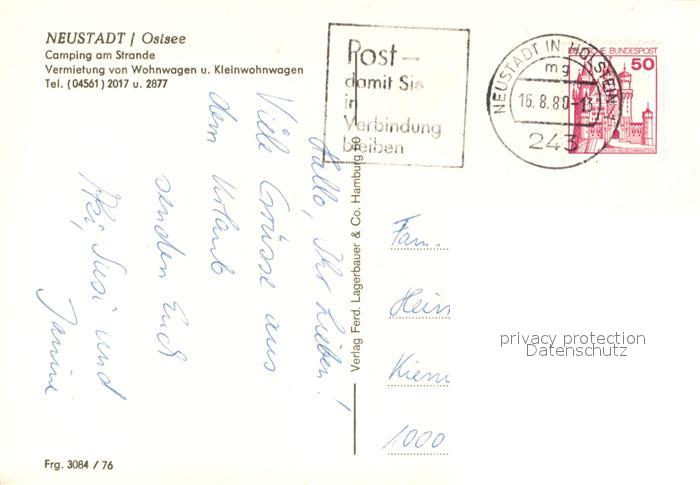 NEUSTADT / Ostsee
Camping am Strande
Vermietung von Wohnwagen u. Kleinwohnwagen
Tel. (04561) 2017 u. 2877
Post –
damit Sie
in
Verbindung
bleiben
NEUSTADT IN HOLSTEIN 1
mg
16.8.80-13
243
DEUTSCHE BUNDESPOST
50
Hallo, Ihr Lieben!
Viele Grüsse aus
dem Urlaub
senden Euch
Susi und
Janine
Verlag Ferd. Lagerbauer & Co. Hamburg 80
Fam.
Hein
Kiem
1000
privacy protection
Datenschutz
Frg. 3084 / 76